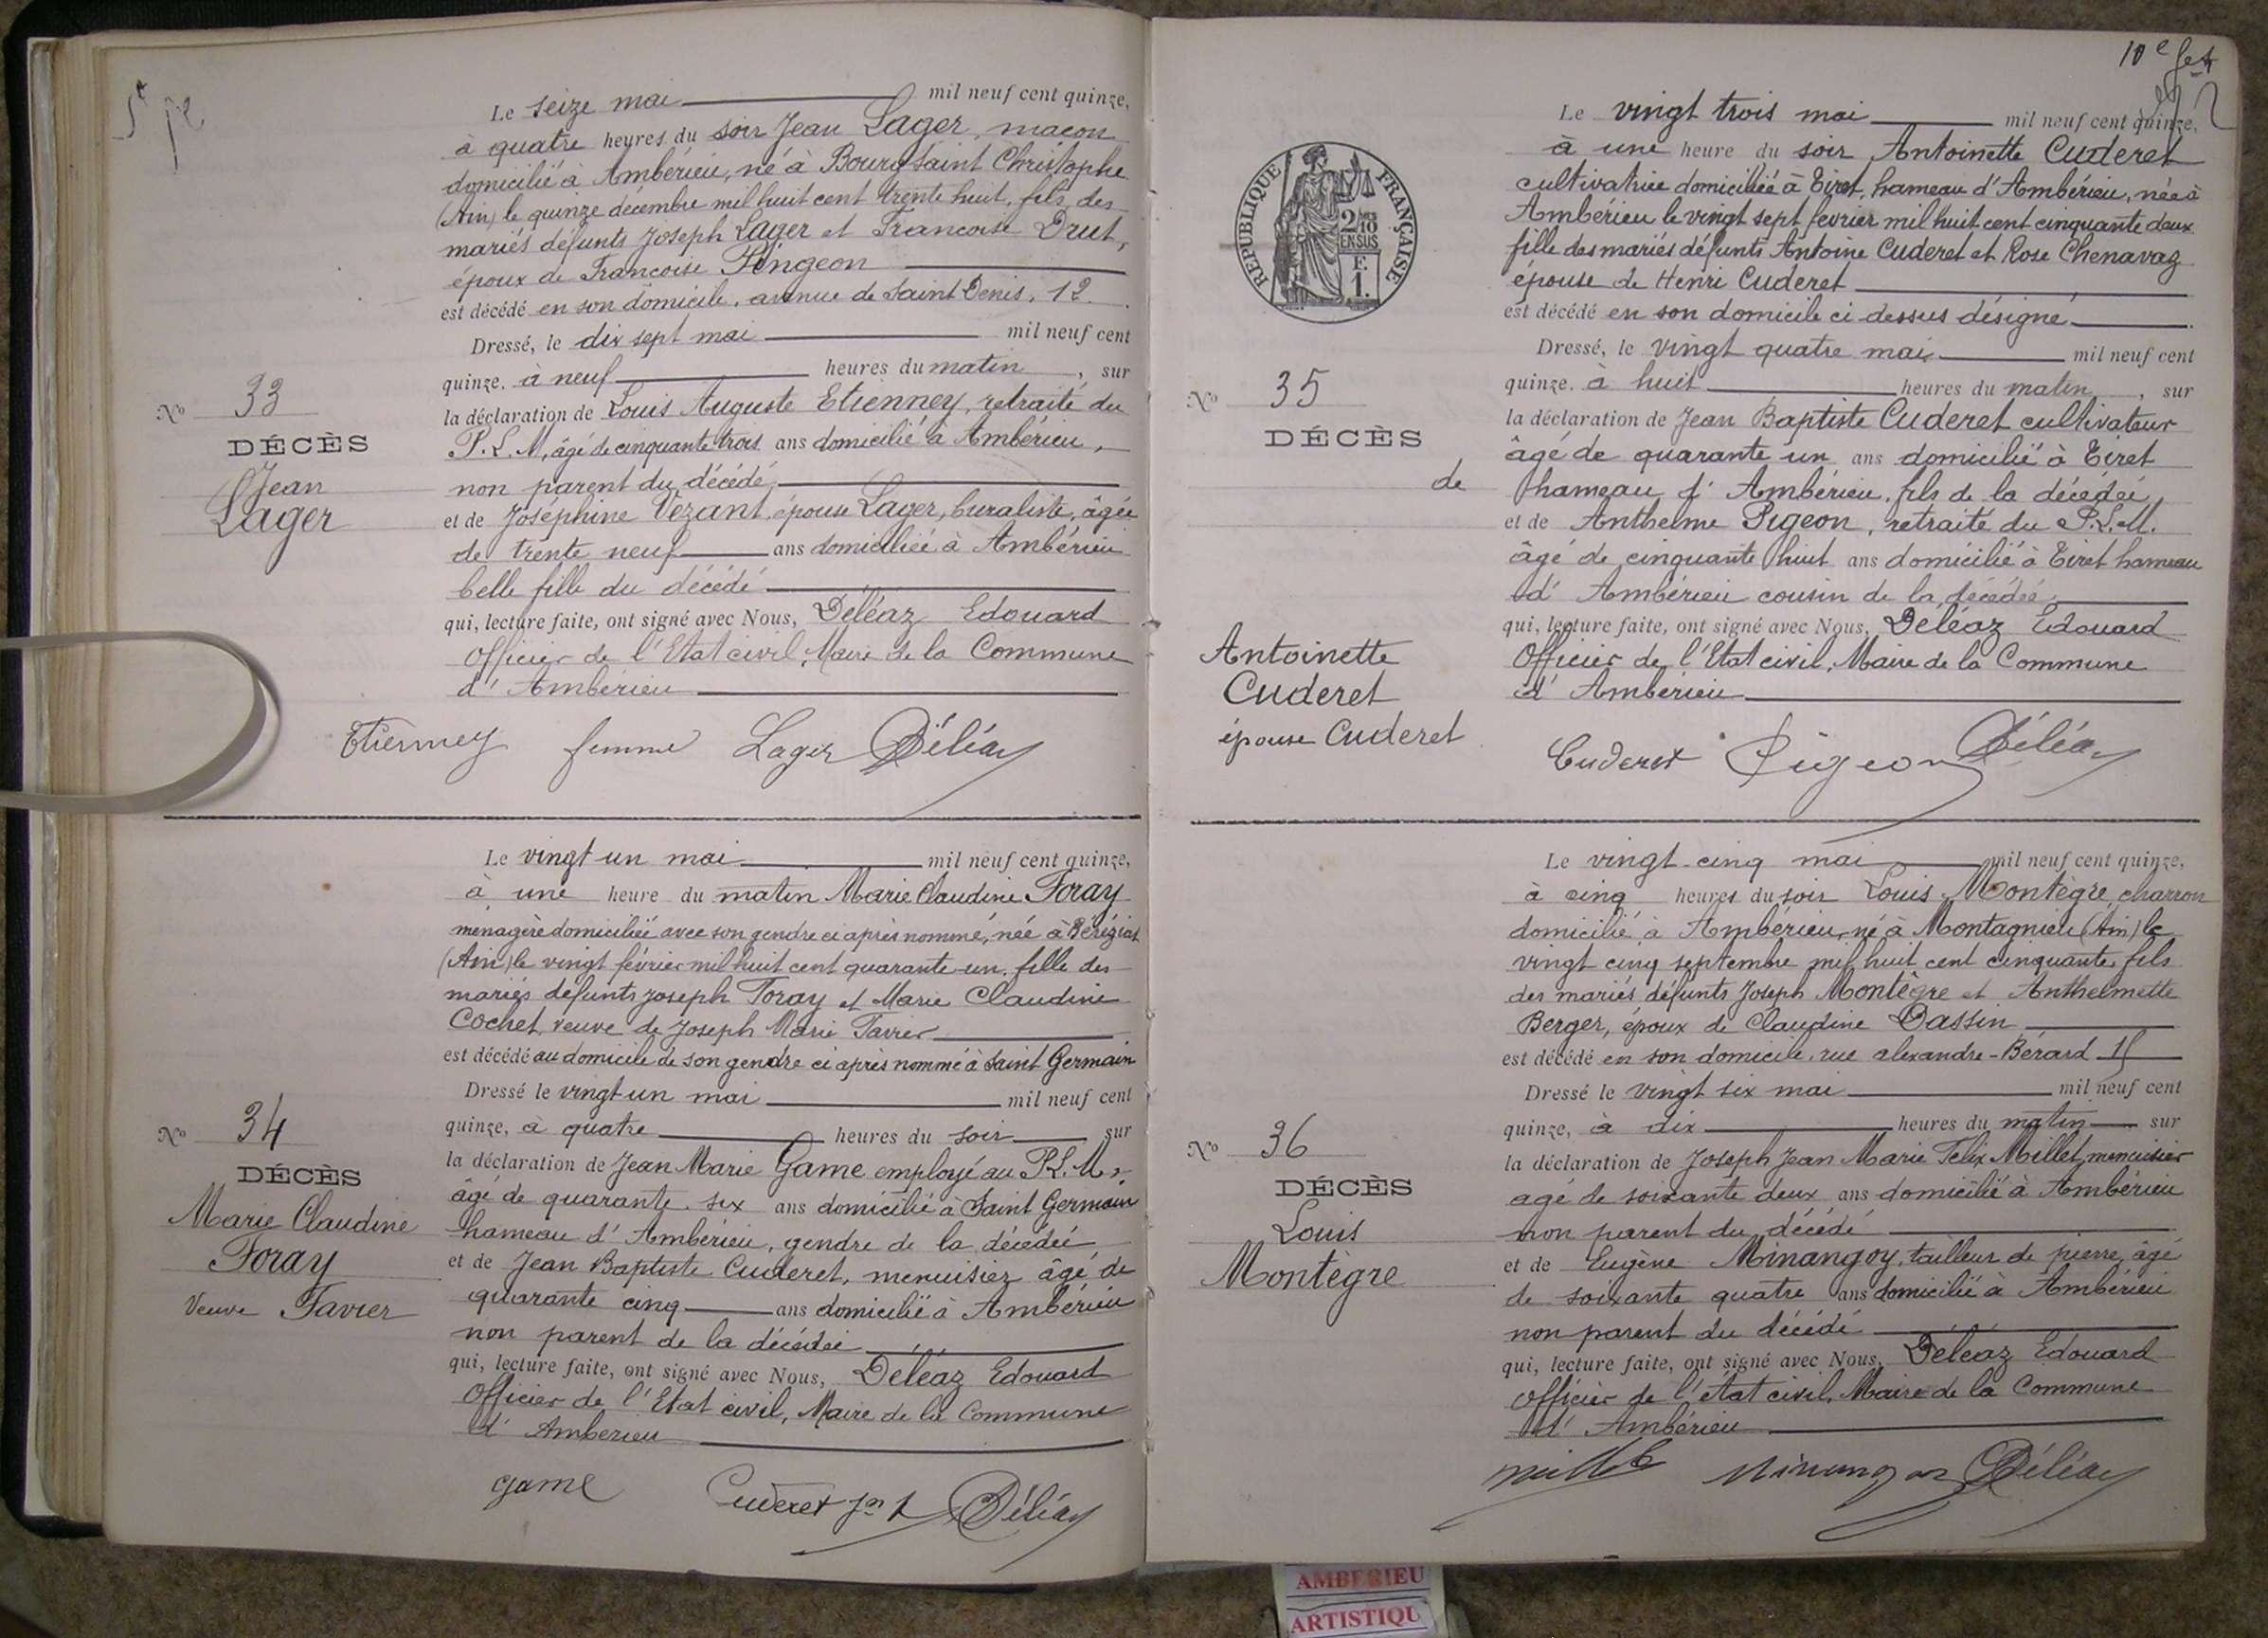 Le seize mai mil neuf cent quinze,
à quatre heures du soir Jean Lager, maçon
domicilié à Ambérieu, né à Bourg Saint Christophe
(Ain) le quinze décembre mil huit cent trente huit, fils des
mariés défunts Joseph Lager et Françoise Drut,
époux de Françoise Pingeon
est décédé en son domicile, avenue de Saint Denis, 12.
Dressé, le dix sept mai mil neuf cent
quinze. à neuf heures du matin, sur
la déclaration de Louis Auguste Etienney, retraité du
P.L.M, âgé de cinquante trois ans domicilié à Ambérieu,
non parent du décédé
et de Joséphine Vézant, épouse Lager, buraliste, âgée
de trente neuf ans domiciliée à Ambérieu
belle fille du décédé
qui, lecture faite, ont signé avec Nous, Déléaz Edouard
Officier de l'Etat civil, Maire de la Commune
d'Ambérieu
No 33
DÉCÈS
Jean
Lager
Etienney femme Lager Déléaz
Le vingt-un mai mil neuf cent quinze,
à une heure du matin Marie Claudine Foray
ménagère domiciliée avec son gendre ci après nommé, née à Béréziat
(Ain) le vingt février mil huit cent quarante-un, fille des
mariés défunts Joseph Foray et Marie Claudine
Cochet, veuve de Joseph Marie Favier
est décédé au domicile de son gendre ci après nommé à Saint Germain
Dressé le vingt-un mai mil neuf cent
quinze, à quatre heures du soir sur
la déclaration de Jean Marie Game employé au P.L.M.,
âgé de quarante-six ans domicilié à Saint Germain
hameau d'Ambérieu, gendre de la décédée
et de Jean Baptiste Cuderet, menuisier âgé de
quarante cinq ans domicilié à Ambérieu
non parent de la décédée
qui, lecture faite, ont signé avec Nous, Déléaz Edouard
Officier de l'Etat civil, Maire de la Commune
d'Ambérieu
No 34
DÉCÈS
Marie Claudine
Foray
Veuve Favier
Game Cuderet Déléaz
10e
RÉPUBLIQUE FRANÇAISE
2/10
EN SUS
F.
1.
Le vingt trois mai mil neuf cent quinze,
à une heure du soir Antoinette Cuderet
cultivatrice domiciliée à Tiret, hameau d'Ambérieu, née à
Ambérieu le vingt sept février mil huit cent cinquante deux
fille des mariés défunts Antoine Cuderet et Rose Chenavaz
épouse de Henri Cuderet
est décédé en son domicile ci-dessus désigné
Dressé, le vingt quatre mai mil neuf cent
quinze. à huit heures du matin, sur
la déclaration de Jean Baptiste Cuderet cultivateur
âgé de quarante un ans domicilié à Tiret
hameau d'Ambérieu, fils de la décédée
et de Anthelme Pigeon, retraité du P.L.M.
âgé de cinquante huit ans domicilié à Tiret hameau
d'Ambérieu cousin de la décédée
qui, lecture faite, ont signé avec Nous, Déléaz Edouard
Officier de l'Etat civil, Maire de la Commune
d'Ambérieu
No 35
DÉCÈS
de
Antoinette
Cuderet
épouse Cuderet
Cuderet Pigeon Déléaz
Le vingt-cinq mai mil neuf cent quinze,
à cinq heures du soir Louis Montègre, charron
domicilié à Ambérieu, né à Montagnieu (Ain) le
vingt cinq septembre mil huit cent cinquante, fils
des mariés défunts Joseph Montègre et Anthelmette
Berger, époux de Claudine Dassin
est décédé en son domicile, rue Alexandre-Bérard 15
Dressé le vingt six mai mil neuf cent
quinze, à dix heures du matin sur
la déclaration de Joseph Jean Marie Félix Millet, menuisier
âgé de soixante deux ans domicilié à Ambérieu
non parent du décédé
et de Eugène Minangoy, tailleur de pierre, âgé
de soixante quatre ans domicilié à Ambérieu
non parent du décédé
qui, lecture faite, ont signé avec Nous, Déléaz Edouard
Officier de l'état civil, Maire de la Commune
d'Ambérieu
No 36
DÉCÈS
Louis
Montègre
Millet Minangoy Déléaz
AMBERIEU
ARTISTIQU